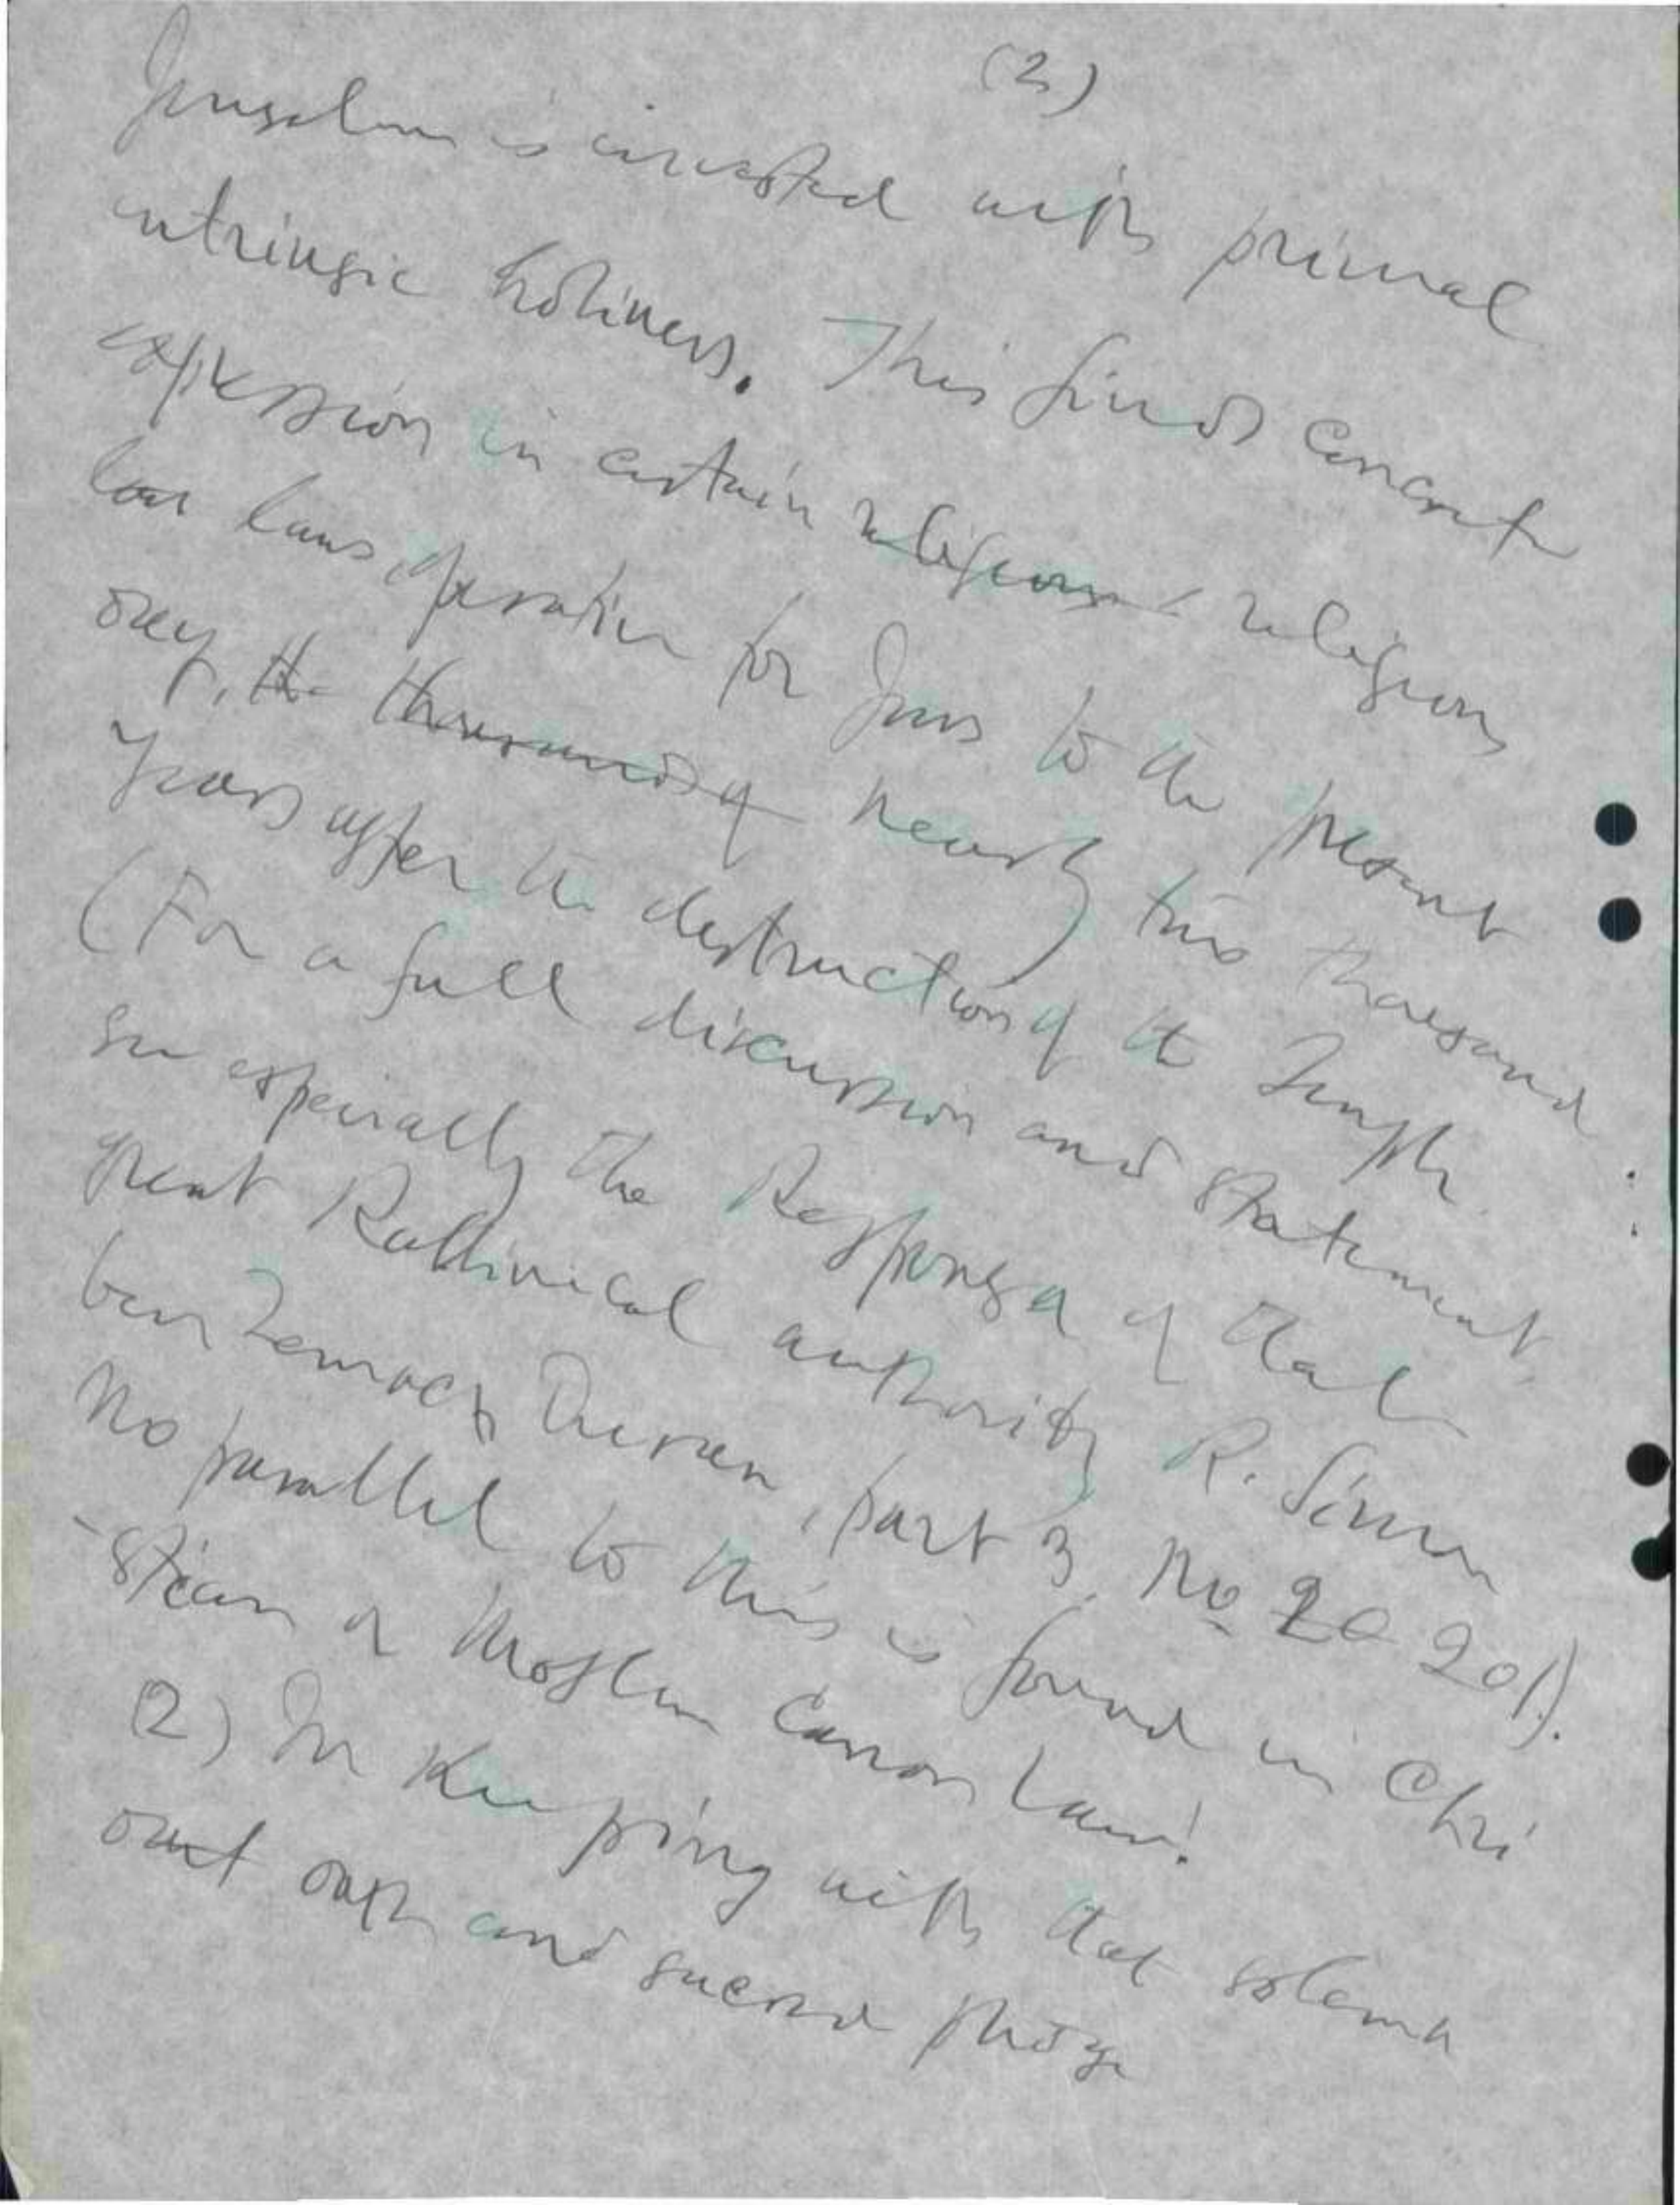 (2)
Jerusalem is invested with primal
intrinsic holiness. This finds concrete
expression in certain religious religious
law laws, operative for Jews to the present
day, the thousands of nearly two thousand
years after the destruction of the Temple.
(For a full discussion and statement
see especially the Responsa of that
great Rabbinical authority R. Simon
ben Zemach Duran, part 3, No 20 201).
No parallel to this is found in Chri
-stian or Moslem Canon law.
(2) In keeping with that solemn
oath and sacred pledge